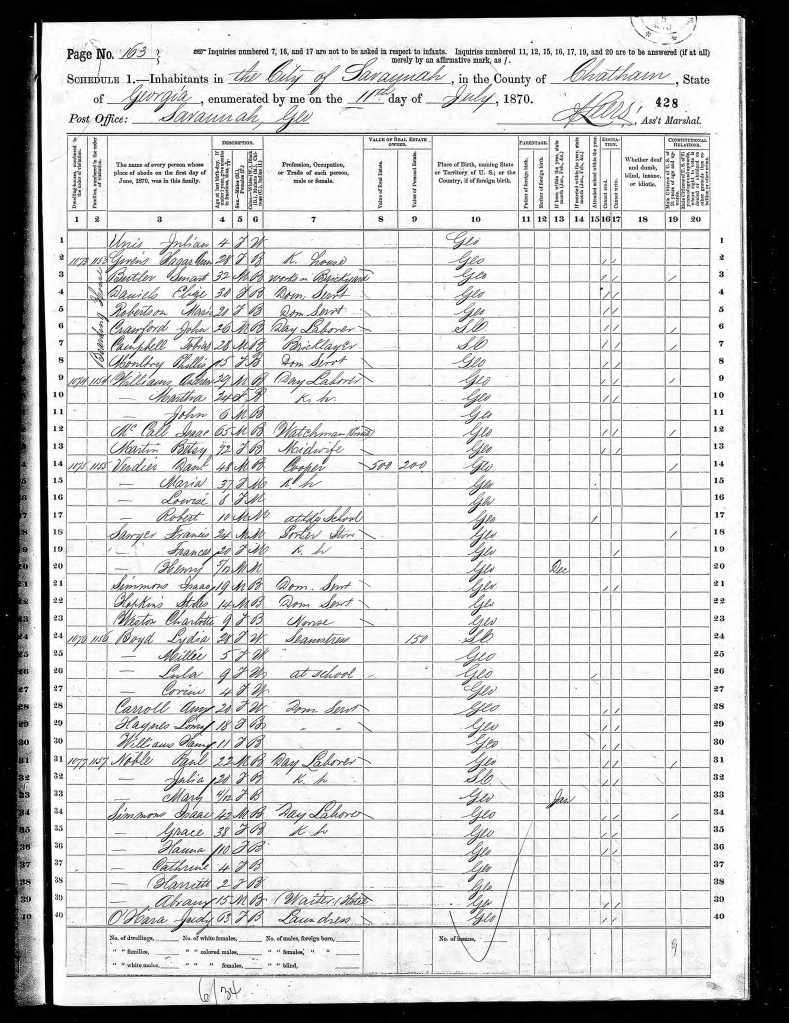 Page No. 163
Inquiries numbered 7, 16, and 17 are not to be asked in respect to infants. Inquiries numbered 11, 12, 15, 16, 17, 19, and 20 are to be answered (if at all)
merely by an affirmative mark, as /.
Schedule 1.—Inhabitants in the City of Savannah, in the County of Chatham, State
of Georgia, enumerated by me on the 11th day of July, 1870.
428
Post Office: Savannah, Geo Ass't Marshal.
DESCRIPTION. VALUE OF REAL ESTATE OWNED. PARENTAGE. EDUCATION. CONSTITUTIONAL RELATIONS.
The name of every person whose place of abode on the first day of June, 1870, was in this family. Profession, Occupation, or Trade of each person, male or female. Value of Real Estate. Value of Personal Estate. Place of Birth, naming State or Territory of U. S.; or the Country, if of foreign birth. Father of foreign birth. Mother of foreign birth. Attended school within the year. Cannot read. Cannot write. Whether deaf and dumb, blind, insane, or idiotic.
1 2 3 4 5 6 7 8 9 10 11 12 13 14 15 16 17 18 19 20
1 Julian 4 F W Geo 1
2 1073 1153 28 F B K. house Geo / / 2
3 Butler Smart 32 M B works in Brickyard Geo / / / 3
4 Daniels 30 F B Dom. Servt Geo / / 4
5 Robertson 21 F B Dom Servt Geo / / 5
6 Crawford John 26 M B Day Laborer S.C / / / 6
7 Campbell 28 M B Bricklayer S.C / / / 7
8 Phillis 15 F B Dom Servt Geo / / 8
9 1074 1154 Williams 29 M B Day Laborer Geo / / / 9
10 — Martha 24 F B K. h. Geo / / 10
11 — John 6 M B Geo 11
12 Mc Call Isaac 65 M B Watchman Geo / / / 12
13 Martin Betsy 72 F B Midwife Geo / / 13
14 1075 1155 Verdier Danl 48 M B Cooper 500 200 Geo / 14
15 — Maria 37 F M K h Geo 15
16 — Louise 8 F M Geo 16
17 Robert 10 M M School Geo / 17
18 Sawyer Francis 24 M M Porter Store Geo / 18
19 — Frances 20 F M K. h Geo / 19
20 — Henry M M Geo Dec 20
21 Simmons Isaac 19 M B Dom. Servt Geo / / 21
22 Hopkins 14 M B Dom Servt Geo 22
23 Weston Charlotte 9 F B Nurse Geo 23
24 1076 1156 Boyd Lydia 28 F W Seamstress 150 S.C 24
25 — Millie 5 F W Geo 25
26 — Lula 9 F W at school Geo / 26
27 — Corine 4 F W Geo 27
28 Carroll Amy 20 F W Dom Servt Geo / / 28
29 Haynes 18 F B " " Geo / / 29
30 Williams 11 F B Geo / / 30
31 1077 1157 Noble Paul 22 M B Day Laborer Geo / / / 31
32 — Julia 20 F B K. h S.C / / 32
33 — Mary 4/12 F B Geo Jan 33
34 Simmons Isaac 42 M B Day Laborer Geo / / / 34
35 — Grace 38 F B K h Geo / / 35
36 — Hanna 10 F B Geo / / 36
37 — Cathrine 4 F B Geo 37
38 — Harriett 2 F B Geo 38
39 — Abram 15 M B Waiter, Hotel Geo / / 39
40 O'Hara Judy 63 F B Laundress Geo / / 40
No. of dwellings, No. of white females, No. of males, foreign born, No. of insane, 9
" " families, " " colored males, " " females, " "
" " white males, " " " females, " " blind,
6/34